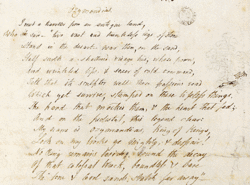 Ozymandias
I met a traveller from an antique land,
Who said "Two vast and trunkless legs of stone
Stand in the desart. near them, on the sand,
Half sunk, a shattered visage lies, whose frown,
And wrinkled lip, & sneer of cold command,
Tell that its sculptor well those passions read
Which yet survive, stamped on these lifeless things,
The hand that mocked them, & the heart that fed;
And on the pedestal, this legend clear:
My name is Ozymandias, King of Kings,
Look on my works ye mighty, & despair!
No thing remains beside. Round the decay
Of that colossal Wreck, boundless &
The lone & level sands stretch far away"